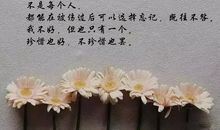 不是每个人，
都能在被伤过后可以选择忘记，既往不咎。
我不好，但也只有一个，
珍惜也好，不珍惜也罢。